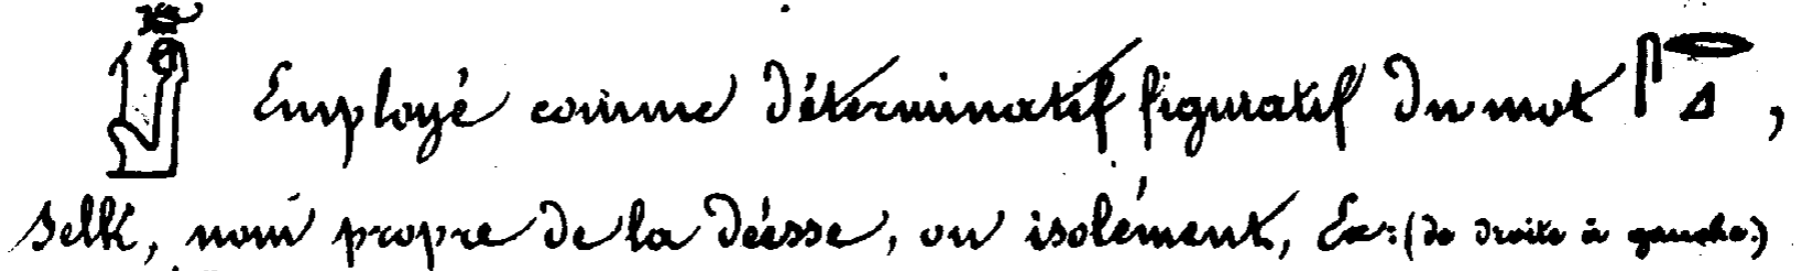 𓁐 Employé comme déterminatif figuratif du mot 𓋴𓂋𓈎,
Selk, nom propre de la déesse, ou isolément, Ex: (de droite à gauche.)